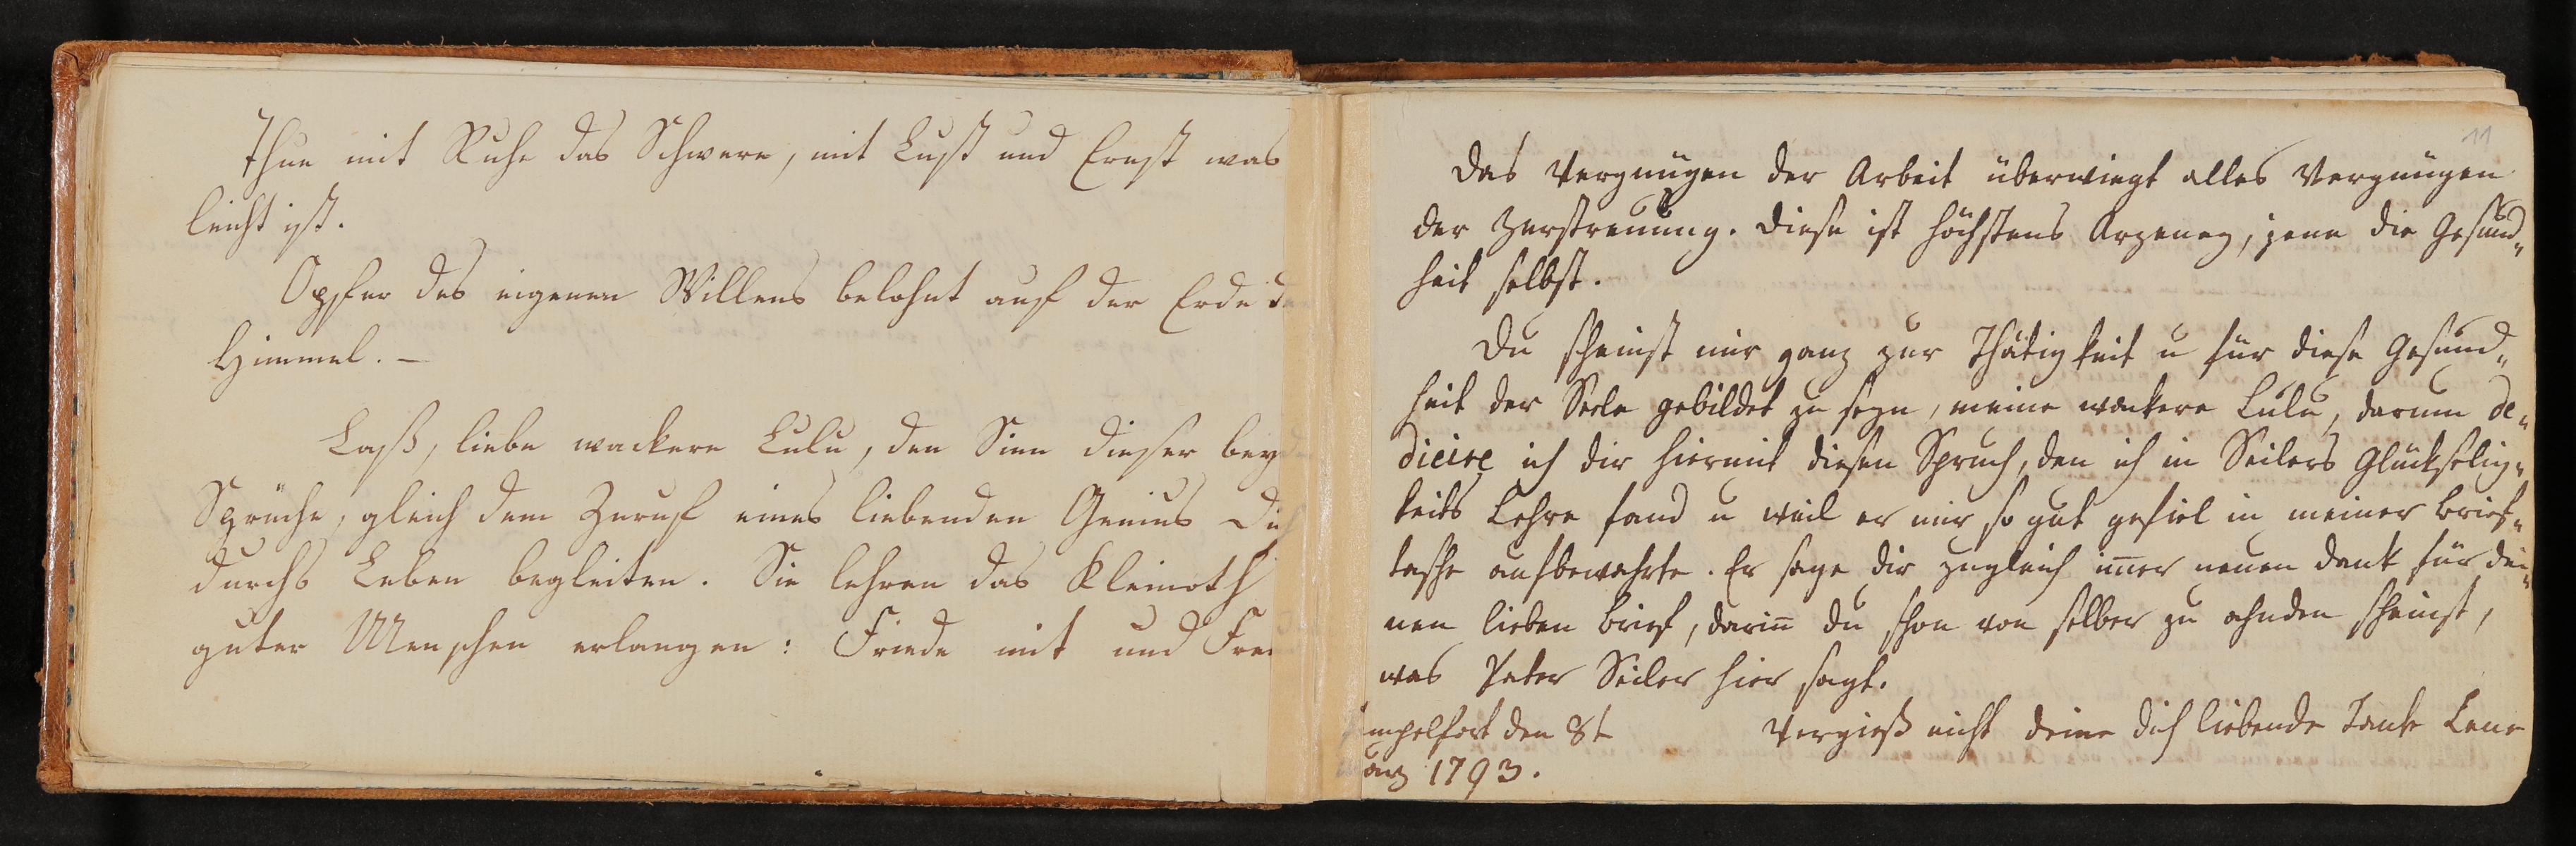 Thue mit Ruhe das Schwere, mit Lust und Ernst was
leicht ist.
Opfer des eigenen Willens belohnt auf der Erde de
Himmel. –
Laß, liebe wackere Lulu, den Sinn dieser bey
Sprüche, gleich dem Zuruf eines liebenden Genius Dich
durchs Leben begleiten. Sie lehren das Kleinoth
guter Menschen erlangen: Friede mit und Freu
11
Das Vergnügen der Arbeit überwiegt alles Vergnügen
der Zerstreuung. Diese ist höchstens Arzeney, jene die Gesund„
heit selbst.
Du scheinst mir ganz zur Thätigkeit u für diese Gesund„
heit der Seele gebildet zu seyn, meine wackere Lulu, darum de„
dicire ich dir hiermit diesen Spruch, den ich in Seilers Glückselig„
keits Lehre fand u weil er mir so gut gefiel in meiner Brief„
tasche aufbewahrte. Er sage dir zugleich im̅er neuen Dank für dei„
nen lieben Brief, darin̅ du schon von selber zu ahnden scheinst,
was Pater Seiler hier sagt.
mpelfort den 8t
Vergieß nicht deine dich liebende Tante Lene
arz 1793.